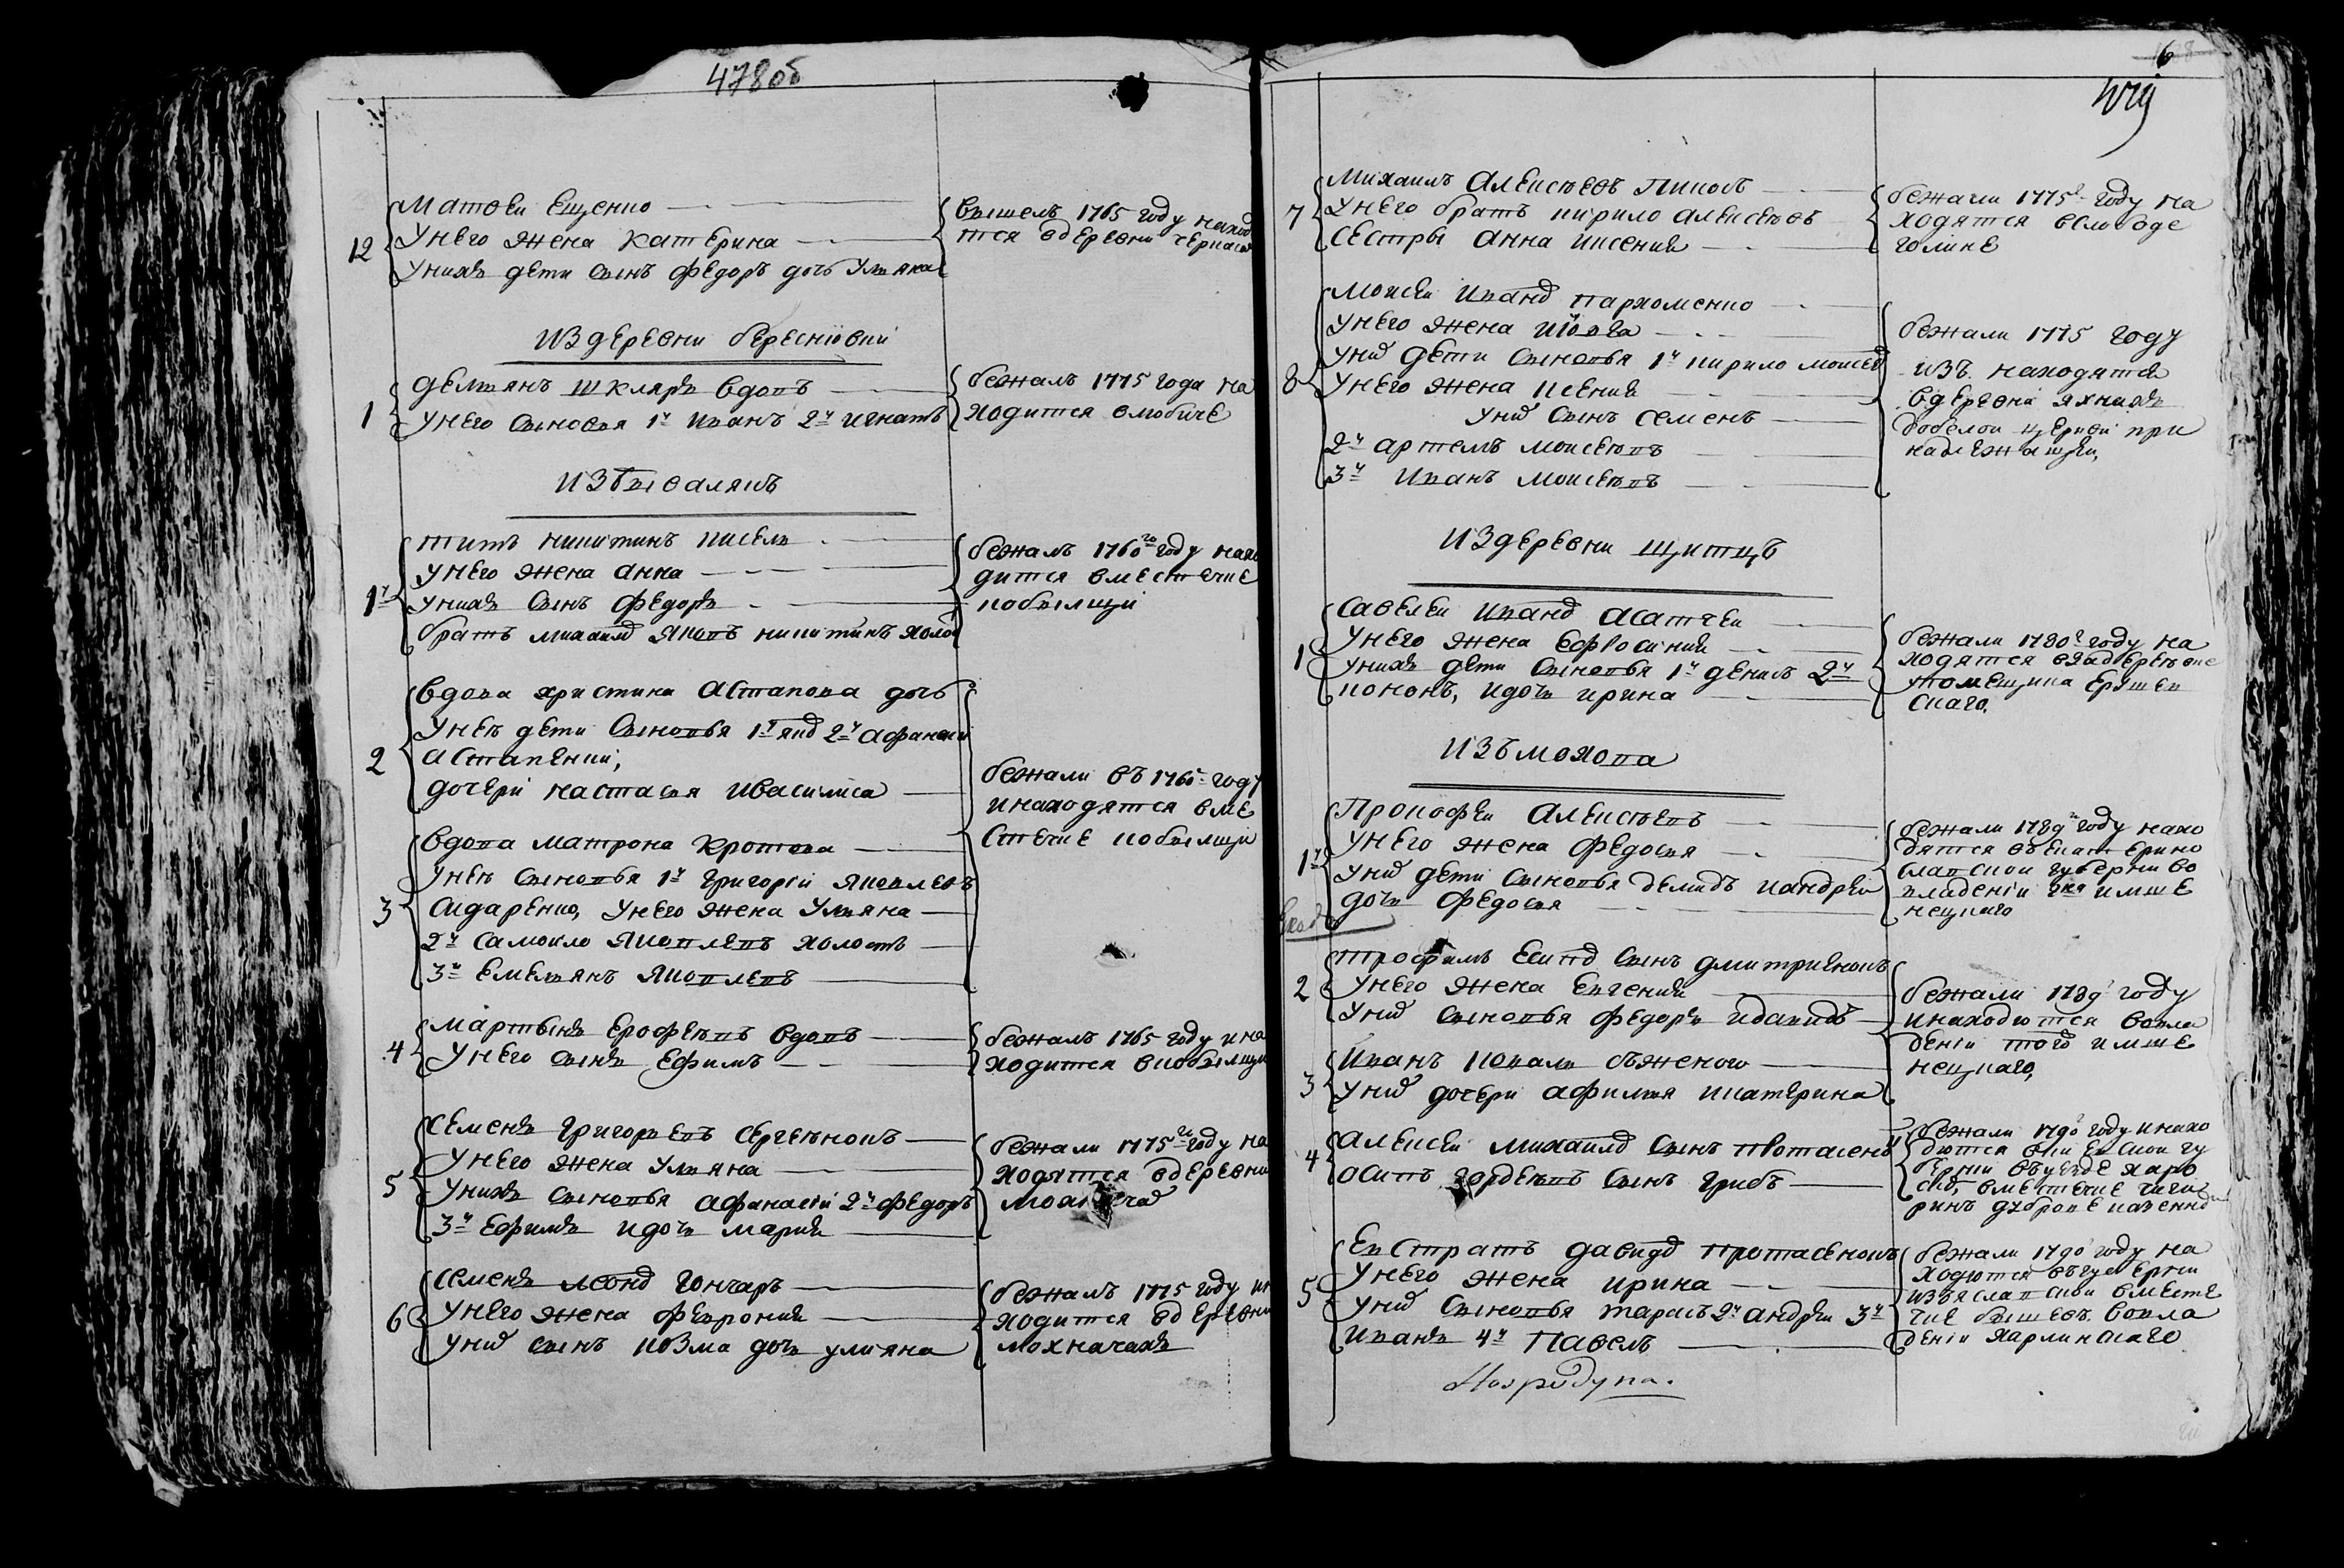 478об
12
Матвеи Ещенко
Унего жена Катерина
Унихъ дети сынъ Федоръ дочь Ульяна
Вышелъ 1765 году наход
итса вдеревни
Издеревни Бересновки
1
Демьянъ Шкляръ вдовъ
Унего сыновья 1й Иванъ 2й Игнатъ
бежалъ 1775 года на
ходится влюбиче
1й
Титъ Никитинъ Кисель
Унего жена Анна
Унихъ сынъ Федоръ
братъ Михаилъ Яковъ Никитинъ холос
бежалъ 1760го году нахо
дится вместечке
Кобылщи
2
Вдова Христина Астапова дочь
Унеѣ дети сыновья 1й Яковъ 2й Афанаси
Астапенки,
дочери Настасья Ивасилиса
бежали въ 1765 году
инаходятся вме
стечке Кобылщи
3
Вдова Матрона Кротова
Унеѣ сыновья 1й Григорiй Яковлевъ
Сидаренко, Унего жена Ульяна
2й Самоило Яковлевъ холостъ
3й Емельянъ Яковлевъ
4
Мартынъ Ерофеѣвъ вдовъ
Унего сынъ Ефимъ
бежалъ 1765 году ина
ходится вкобылщи
5
Семенъ Григорьевъ Сергеѣнокъ
Унего жена Ульяна
Унихъ сыновья Афанасiй 2й Федоръ
3й Ефимъ Идочь Мария
бежали 1775го году на
ходятся вдеревни
6
Семенъ Леонов Гончаръ
Унего жена Феврония
Унихъ сынъ Козма дочь Улияна
бежалъ 1775 году ин
ходится вдеревни
Мохначахъ
6
7
Михаилъ Алексѣевъ Пиколъ
Унего братъ Кирило Алексѣевъ
сестры Анна Иксения
бежали 1775г году на
ходятся вслободе
Голике
8
Моисеи Иванов Пархоменко
Унего жена
Унихъ дети сыновья 1й Кирило Моисеев
Унего жена Ксения
Унихъ сынъ Семенъ
2й Артемъ Моисеѣвъ
3й Иванъ Моисеѣвъ
бежали 1775 году
изъ находятся
вдеревни Яхнихъ
добелои церкви при
надлежащеи,
Издеревни Щитцъ
1
Савелеи Иванов Асатчеи
Унего жена Ефросиния
Унихъ дети сыновья 1й Денисъ 2й
Кононъ, Идочь Ирина
бежали 1780г году на
ходятся
упомещика
скаго,
Изъ Мохова
1й
Прокофеи Алексѣевъ
Унего жена Федосья
Унихъ дети сыновья Демидъ Иандреи
дочь Федосья
бежали 1789го году нахо
дятся въекатерино
славскои губернiи во
владенiи
нещкаго
2
Трофимъ Есипов сынъ Дмитриенокъ
Унего жена Евгения
Унихъ сыновья Федоръ Идавидъ
бежали 1789 году
инаходются вовла
денiи того
нещкаго,
3
Иванъ Коваль бѣженого
Унихъ дочери Афимья Икатерина
4
Алексеи Михаилов сынъ Протасенъ
Осипъ Гордеѣвъ сынъ Грибъ
бежали 1790 году инахо
дются вкиевскои гу
бернiи въуезде
вместечке Чиги
ринъ дубраве казенной
5
Евстратъ Давидов Протасенокъ
Унего жена Ирина
Унихъ сыновья Тарасъ 2й Андреи 3й
Иванъ 4й Павелъ
бежали 1790 году на
ходются въгубернiи
изъяславскои вместе
чке вовла
денiи Харлинскаго